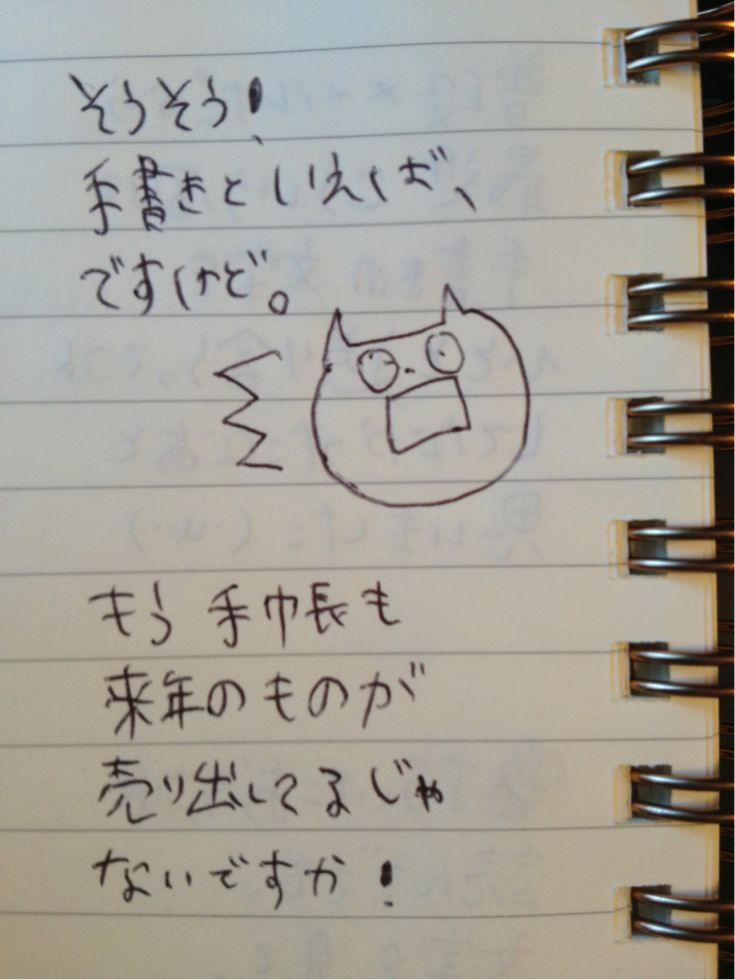 そうそう!
手書きといえば、
ですけど。
もう手帳も
来年のものが
売り出してるじゃ
ないですか!